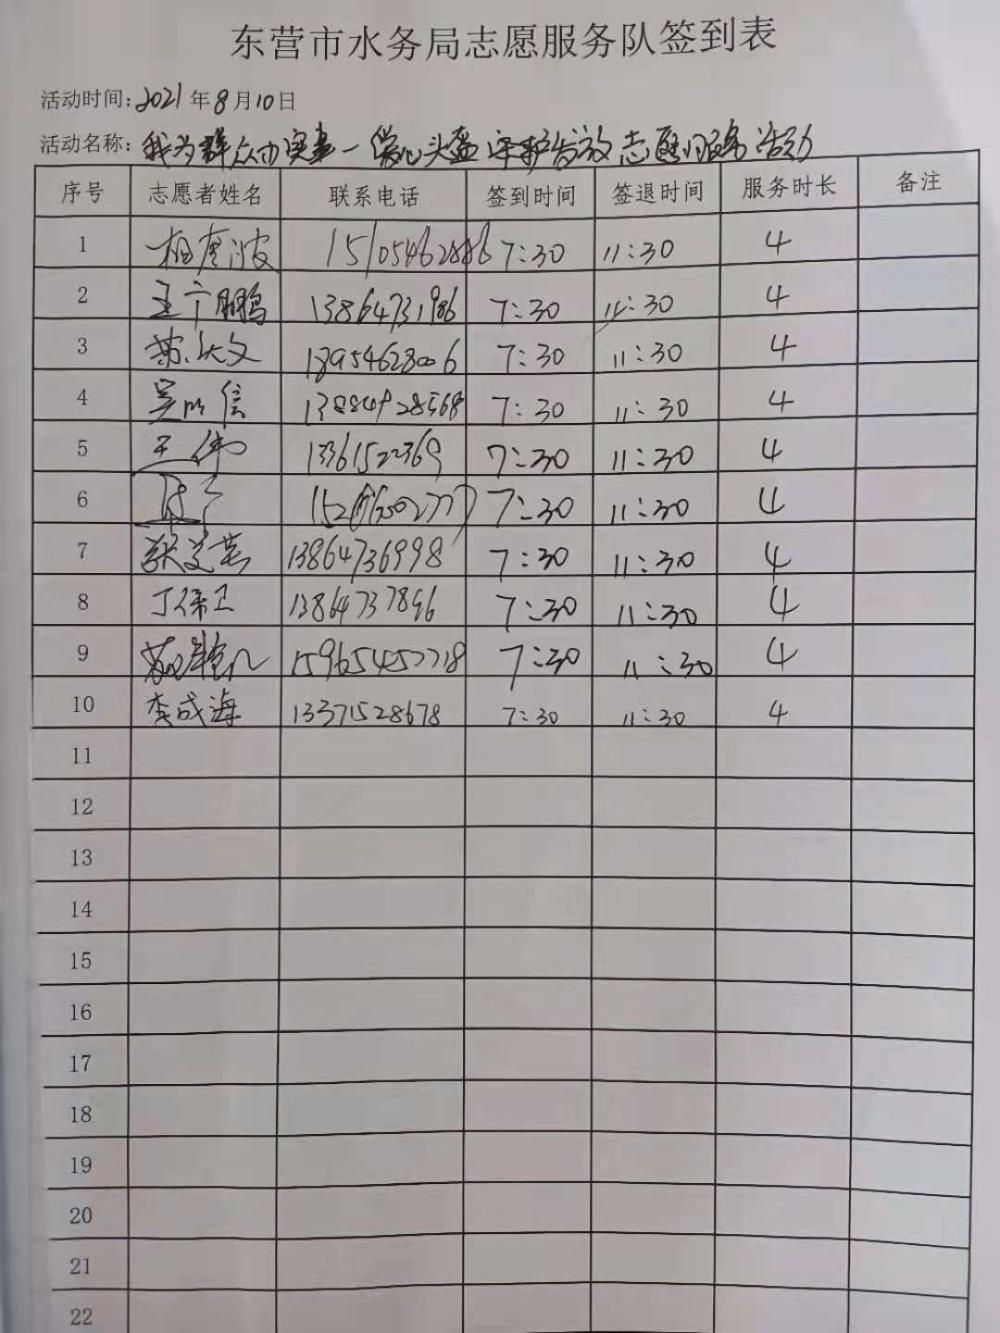 东营市水务局志愿服务队签到表
活动时间:2021年8月10日
活动名称:我为群众办实事一爱心头盔 守护 发放志愿服务活动
序号 志愿者姓名 联系电话 签到时间 签退时间 服务时长 备注
1 相 波 15105462886 7:30 11:30 4
2 王 鹏 13864731986 7:30 11:30 4
3 文 18954628006 7:30 11:30 4
4 吴 信 7:30 11:30 4
5 王伟 13361522369 7:30 11:30 4
6 7:30 11:30 4
7 张 13864736998 7:30 11:30 4
8 丁保卫 13864737896 7:30 11:30 4
9 15965457718 7:30 11:30 4
10 李成海 13371528678 7:30 11:30 4
11
12
13
14
15
16
17
18
19
20
21
22